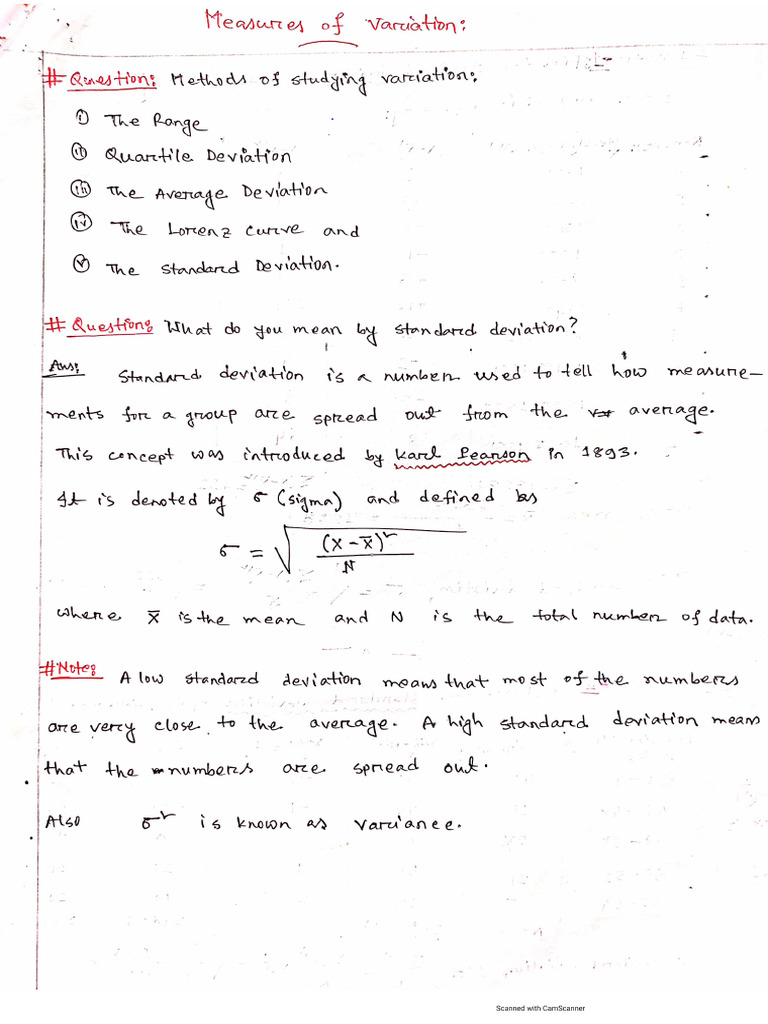 Measures of variation:
# Question: Methods of studying variation:
i) The Range
ii) Quartile Deviation
iii) The Average Deviation
iv) The Lorenz Curve and
v) The Standard Deviation.
# Question: What do you mean by standard deviation?
Ans: Standard deviation is a number used to tell how measure-
ments for a group are spread out from the average.
This concept was introduced by Karl Pearson in 1893.
It is denoted by σ (sigma) and defined by
σ = √((X - X̄)² / N)
where X̄ is the mean and N is the total number of data.
# Note: A low standard deviation means that most of the numbers
are very close to the average. A high standard deviation means
that the numbers are spread out.
Also σ² is known as variance.
Scanned with CamScanner